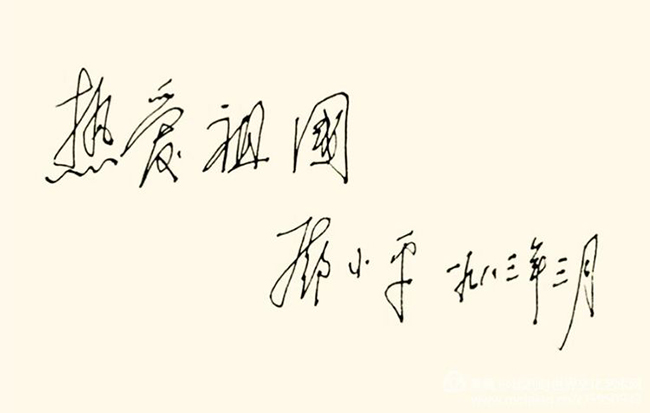 热爱祖國
鄧小平 一九八三年三月